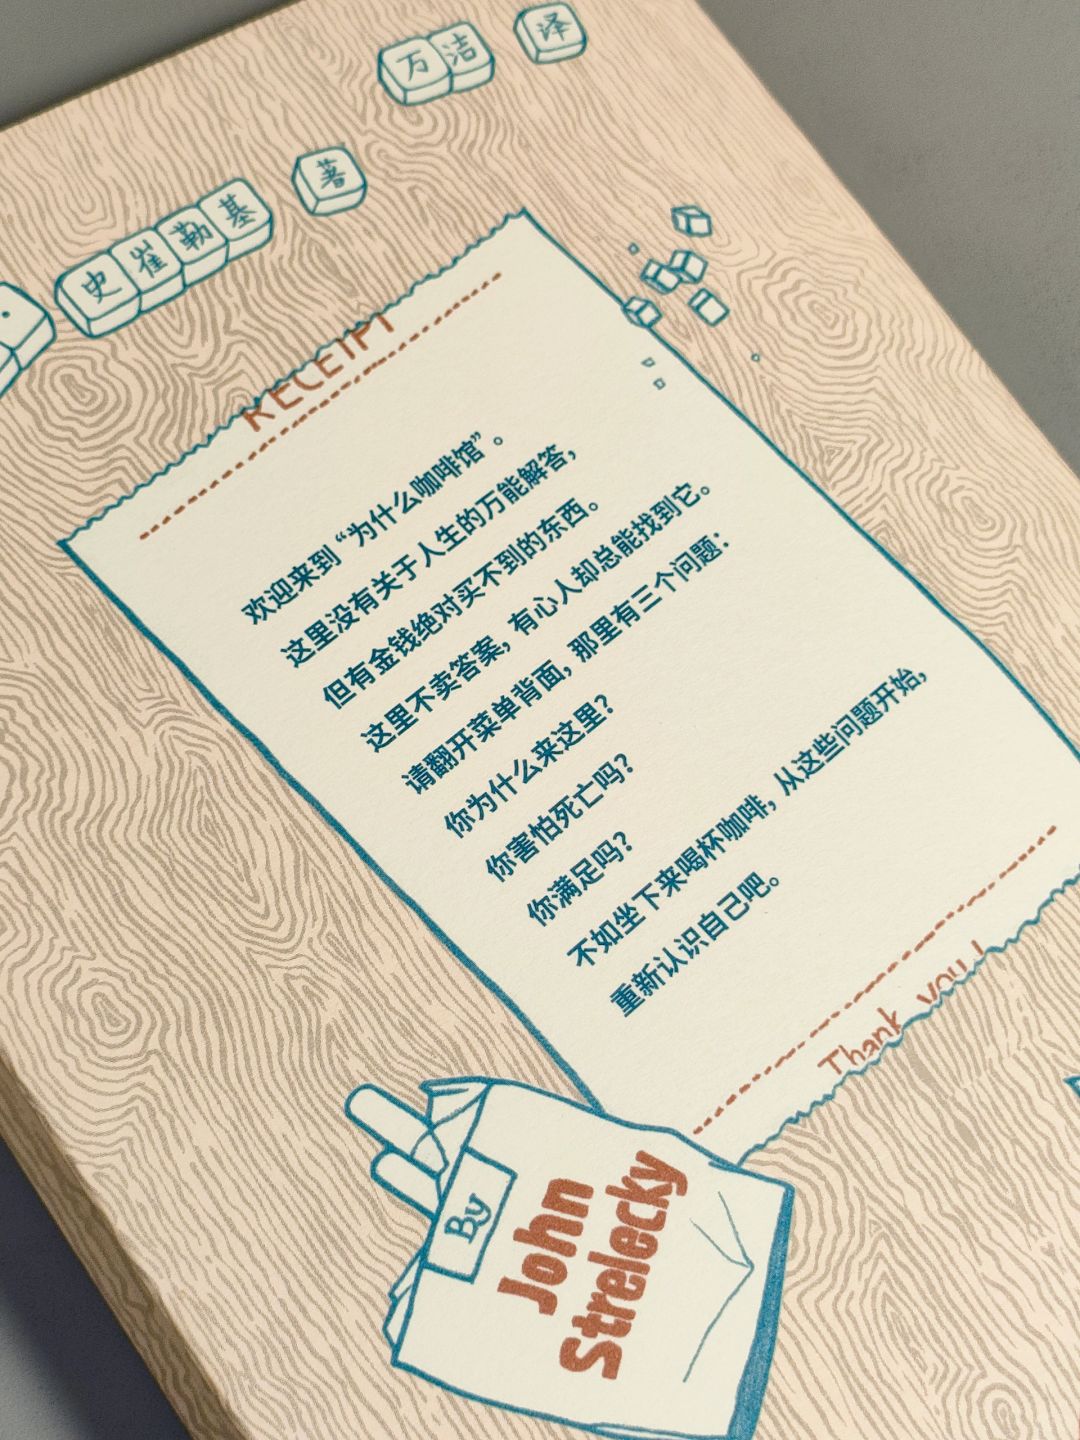 万洁 译
史崔勒基 著
RECEIPT
欢迎来到“为什么咖啡馆”。
这里没有关于人生的万能解答，
但有金钱绝对买不到的东西。
这里不卖答案，有心人却总能找到它。
请翻开菜单背面，那里有三个问题：
你为什么来这里？
你害怕死亡吗？
你满足吗？
不如坐下来喝杯咖啡，从这些问题开始，
重新认识自己吧。
Thank you!
By
John
Strelecky